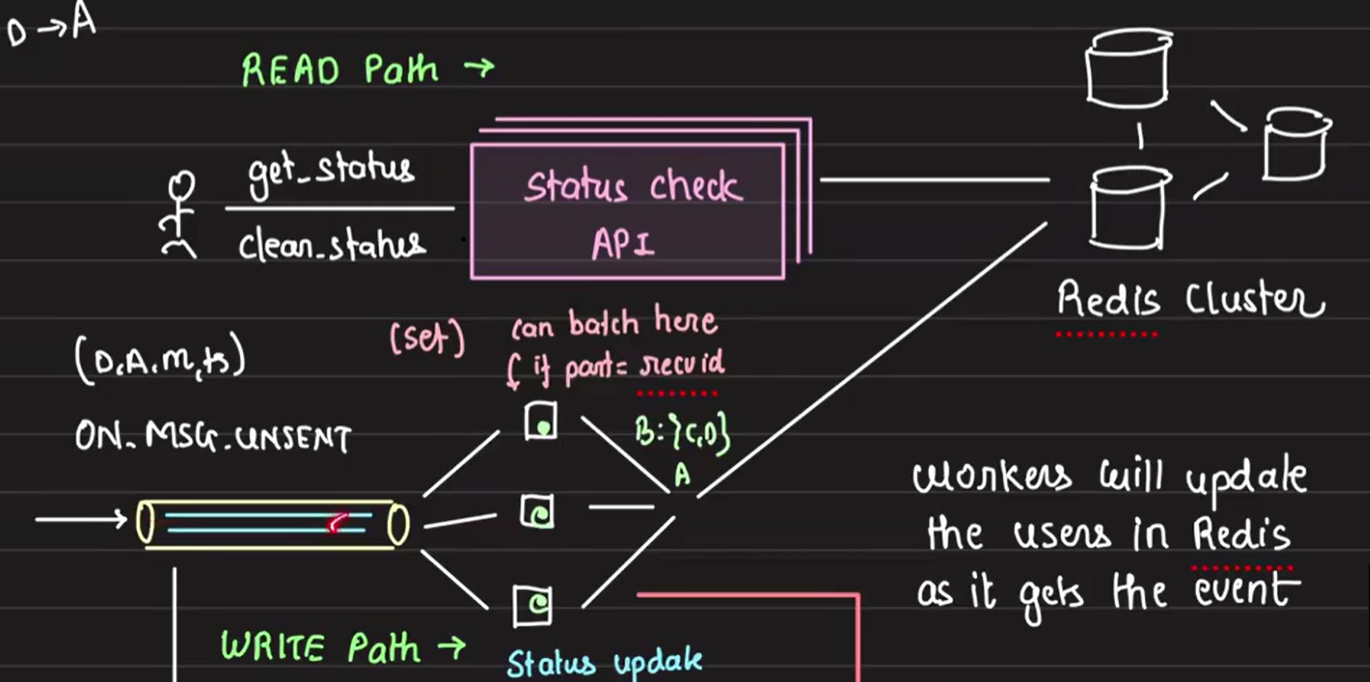 D → A
READ Path →
get_status
clean_status
Status check
API
Redis Cluster
(D, A, m, ts)
ON_MSG_UNSENT
(set)
can batch here
if part= recv id
B: {C,D}
A
workers will update
the users in Redis
as it gets the event
WRITE Path →
Status update